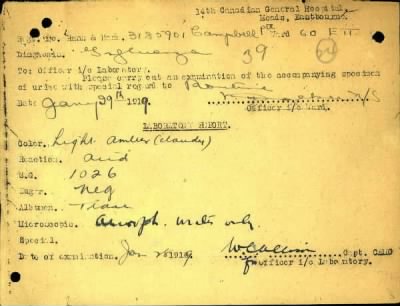 14th Canadian General Hospital,
Meads, Eastbourne.
Regt. No. Rank & Name. 3185901 Campbell Pte Ward 60 E
Diagnosis. 39
To: Officer i/c Laboratory.
Please carry out an examination of the accompanying specimen
of urine with special regard to
Date Jany 29th 1919. Officer i/c Ward.
LABORATORY REPORT.
Color. Light Amber (cloudy)
Reaction. acid
S.G. 1026
Sugar. Neg
Albumen. Trace
Microscopic. Amorph. urates only.
Special.
Date of examination. Jan 1919. Capt. CAMC
for Officer i/c Laboratory.